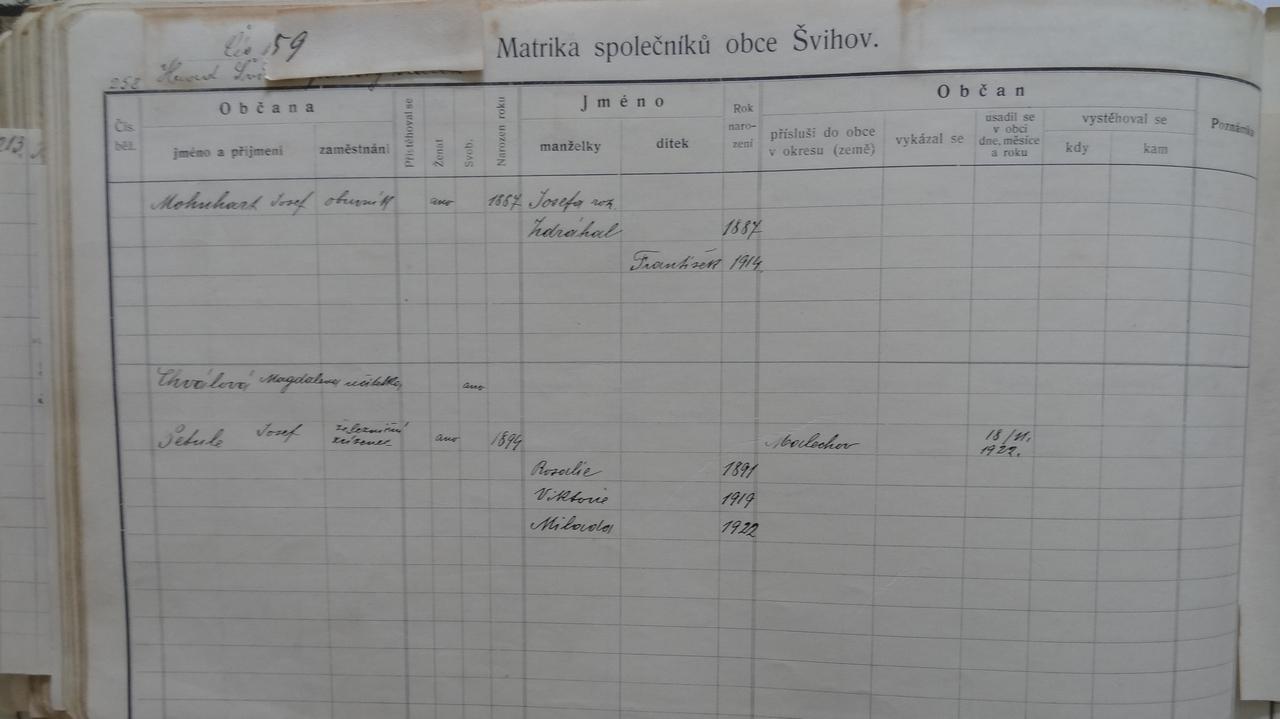 Čís 159
Matrika společníků obce Švihov.
258
Čís. běž.
Občana
jméno a přijmení
zaměstnání
Přistěhoval se
Ženat
Svob.
Narozen roku
Jméno
manželky
dítek
Rok naro- zení
Občan
přísluší do obce v okresu (země)
vykázal se
usadil se v obci dne, měsíce a roku
vystěhoval se
kdy
kam
Poznámka
213.
Mohnhart Josef obuvník ano 1887 Josefa roz.
Zdráhal 1887
František 1914
Chválová Magdalena učitelka ano
Šebule Josef železniční zřízenec ano 1894 Malechov 18/11. 1922.
Rosalie 1891
Viktorie 1919
Milada 1922